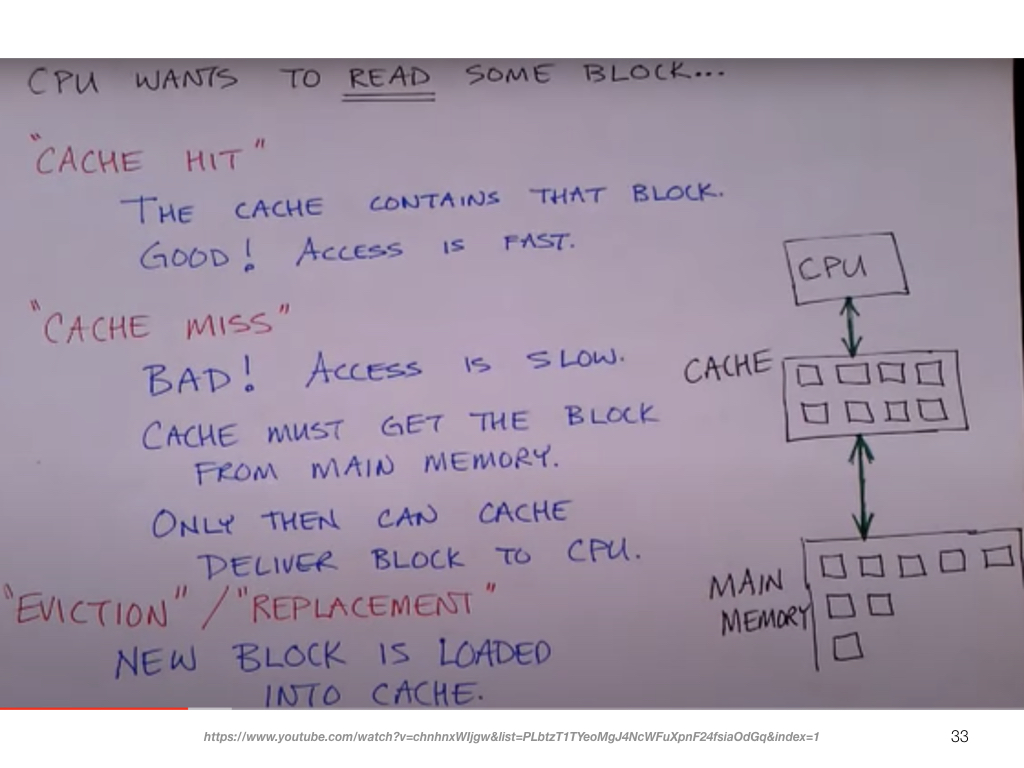 CPU WANTS TO READ SOME BLOCK...
"CACHE HIT"
THE CACHE CONTAINS THAT BLOCK.
GOOD! ACCESS IS FAST.
"CACHE MISS"
BAD! ACCESS IS SLOW.
CACHE MUST GET THE BLOCK
FROM MAIN MEMORY.
ONLY THEN CAN CACHE
DELIVER BLOCK TO CPU.
"EVICTION" / "REPLACEMENT"
NEW BLOCK IS LOADED
INTO CACHE.
CPU
CACHE
MAIN
MEMORY
https://www.youtube.com/watch?v=chnhnxWIjgw&list=PLbtzT1TYeoMgJ4NcWFuXpnF24fsiaOdGq&index=1
33